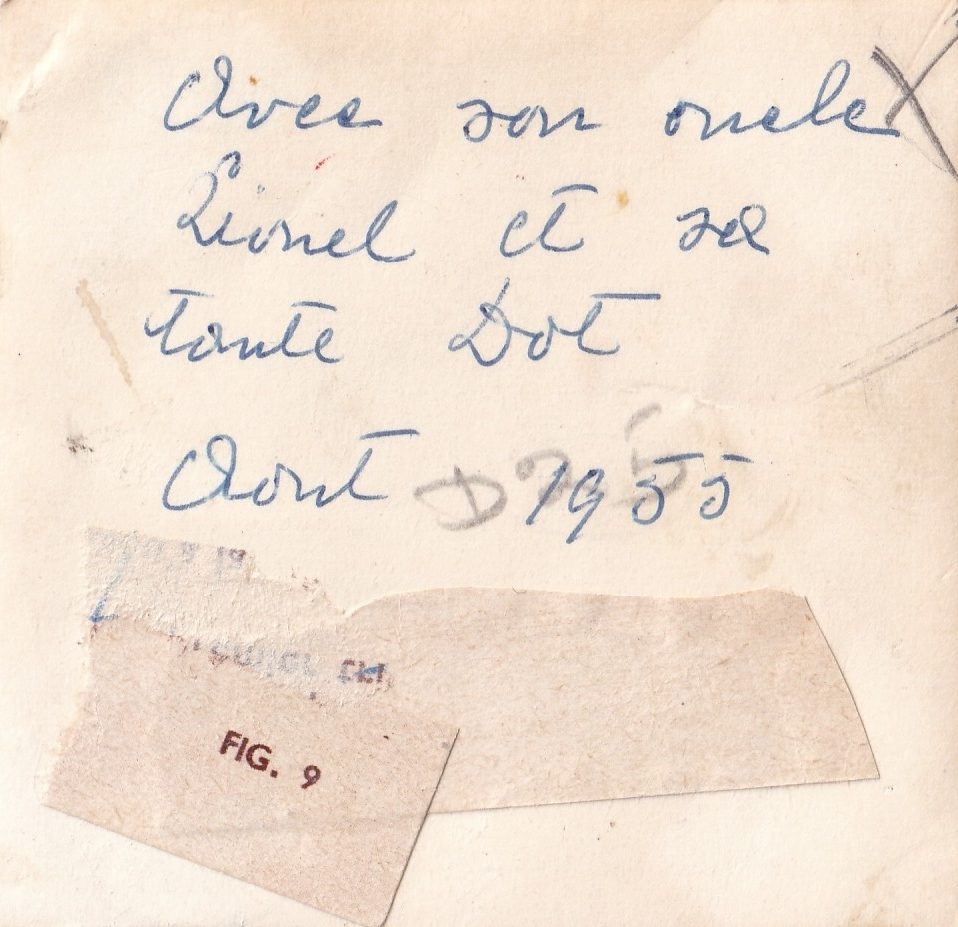 Avec son oncle
Lionel et sa
tante Dot
Aout 1955
FIG. 9